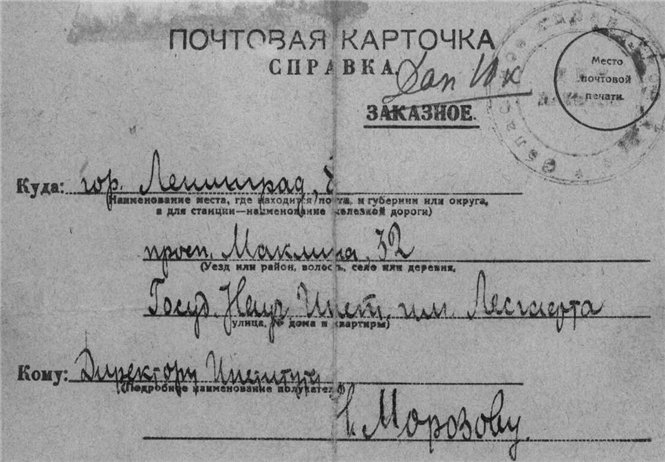 ПОЧТОВАЯ КАРТОЧКА
СПРАВКА
ЗАКАЗНОЕ.
Место
почтовой
печати.
Куда: гор. Ленинград,
(Наименование места, где находится почта, и губернии или округа,
а для станции—наименование железной дороги)
просп. Маклина, 32
(Уезд или район, волость, село или деревня,
Госуд. Науч. Инст. им. Лесгафта
улица, № дома и квартиры)
Кому: Директору Института
(Подробное наименование получателя)
Морозову.